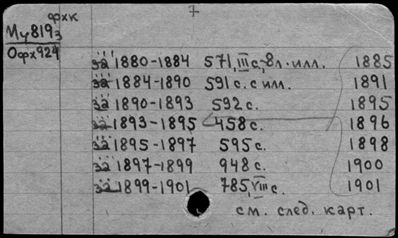 7
ФХК
Му8193
Офх924
за 1880-1884 571, III с., 8 л. илл. 1885
за 1884-1890 591 с. с илл. 1891
за 1890-1893 592 с. 1895
за 1893-1895 458 с. 1896
за 1895-1897 595 с. 1898
за 1897-1899 948 с. 1900
за 1899-1901 785, VIII с. 1901
см. след. карт.